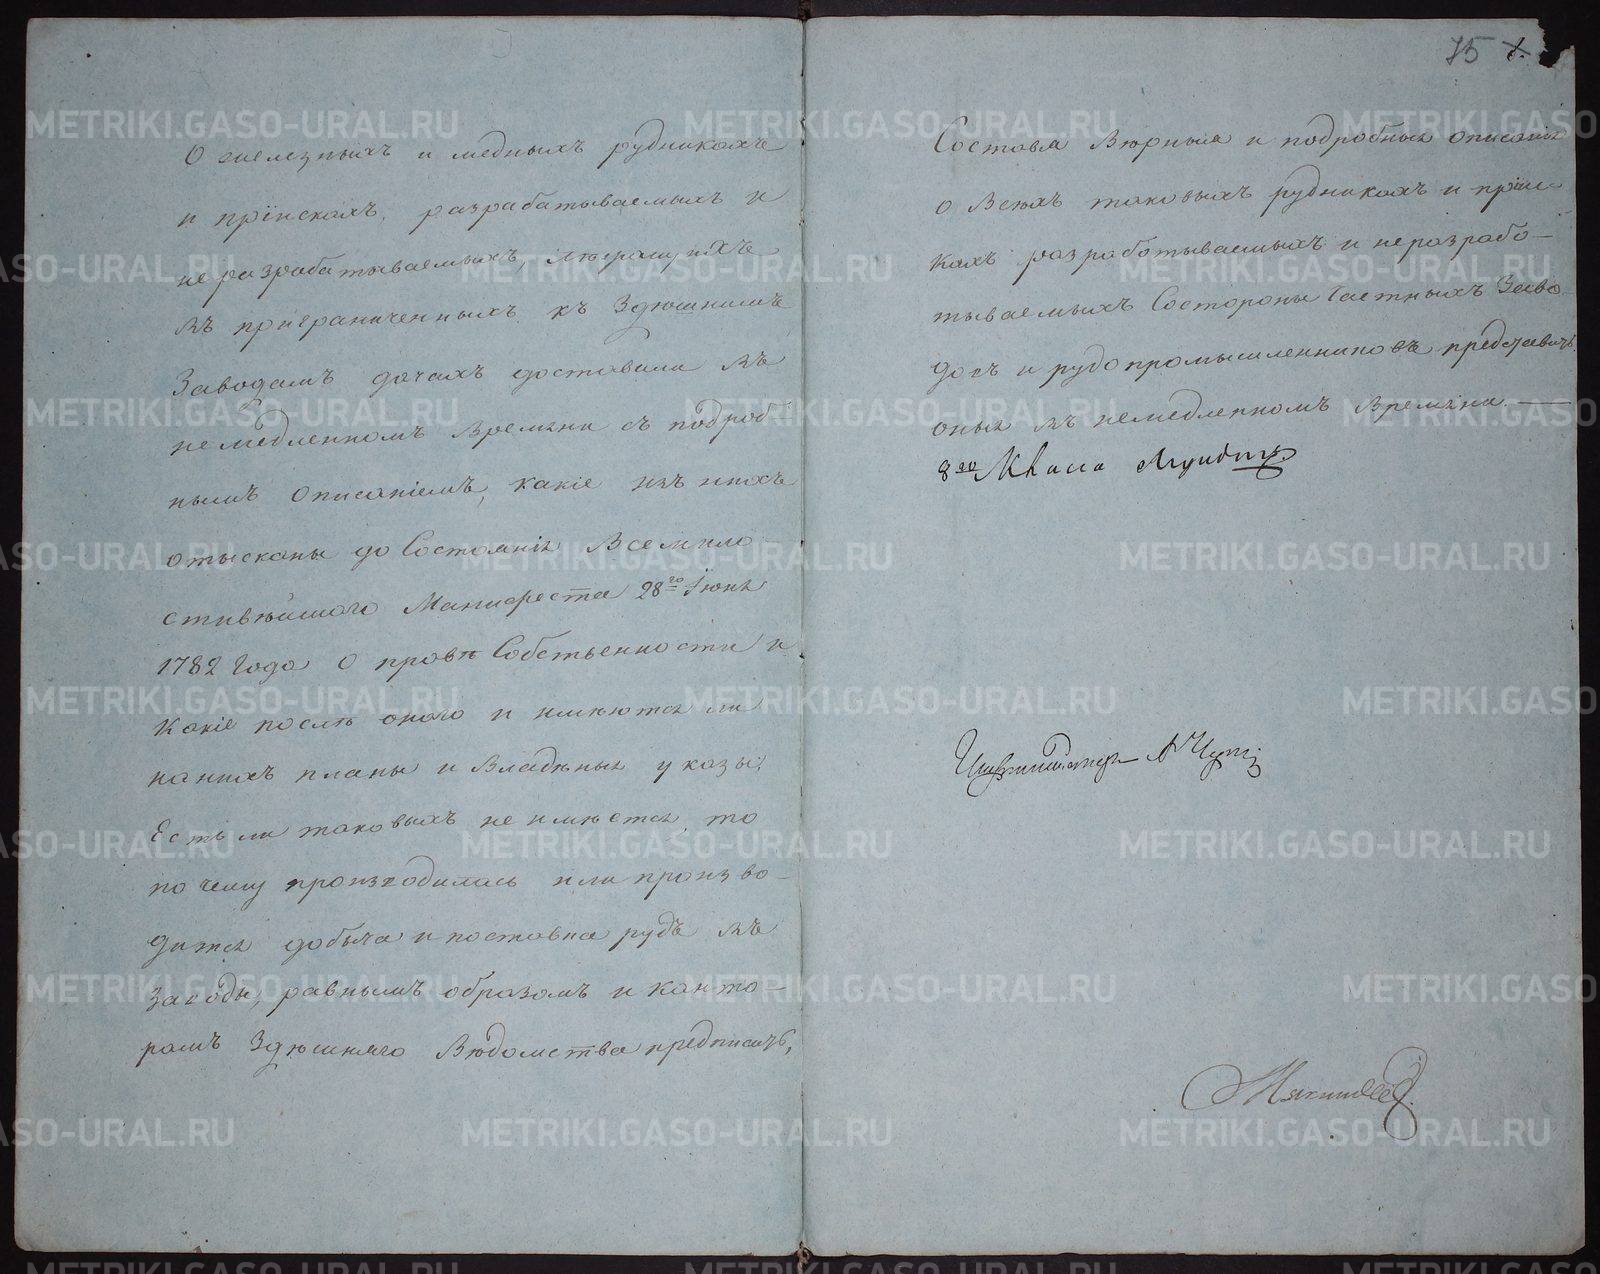 О железныхъ и медныхъ рудникахъ
и прїискахъ, разрабатываемыхъ и
неразрабатываемыхъ, лѣжащихъ
въ приграниченныхъ къ Здѣшнимъ
Заводамъ дачахъ доставили въ
немедленномъ времѣни съ подроб
нымъ описанїемъ, какїе изъ нихъ
отысканы до Состоянїя Всемило
стивѣйшаго Манифеста 28го Iюня
1782 Года О правѣ Собственности и
какїе послѣ онаго и имѣются ли
на нихъ планы и Владѣнныя указы,
Есть ли таковыхъ не имѣется, то
по чему производилась или произво-
дится добыча и поставка рудъ въ
заводы, равнымъ образомъ и канто-
рамъ Здѣшняго Вѣдомства предписать,
75
Составя Вѣрныя и подробныя описанїя
о Всѣхъ таковыхъ рудникахъ и прїис-
кахъ разработываемыхъ и неразрабо-
тываемыхъ Состороны Частныхъ Заво
довъ и рудопромышленниковъ представить
оныя въ немедленномъ Времѣни.
METRIKI.GASO-URAL.RU